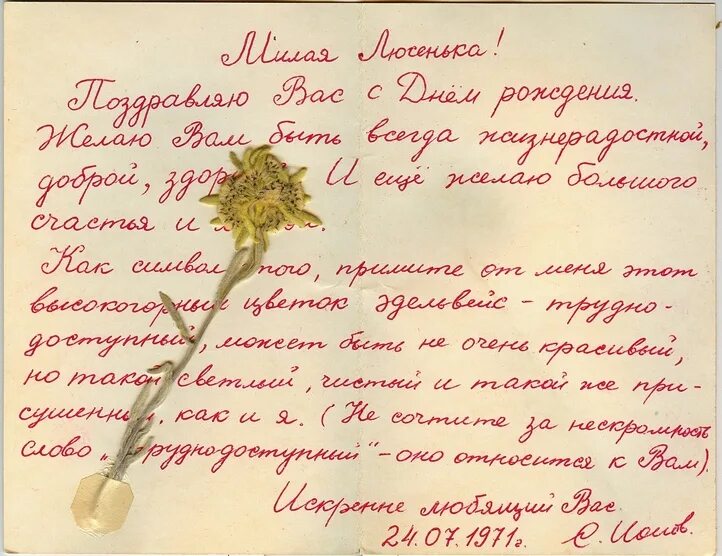 Милая Люсенька!
Поздравляю Вас с Днём рождения.
Желаю Вам быть всегда жизнерадостной,
доброй, И ещё желаю большого
счастья и
Как символ того, примите от меня этот
высокогорный цветок эдельвейс – трудно-
доступный, может быть не очень красивый,
но такой светлый, чистый и такой же при-
сушенный, как и я. (Не сочтите за нескромность
слово „труднодоступный" – оно относится к Вам).
Искренне любящий Вас
24.07.1971г. С.